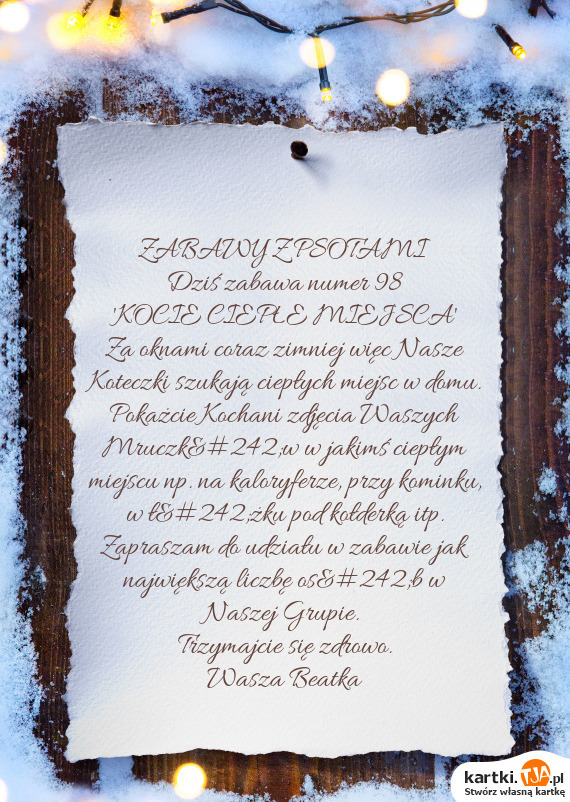 ZABAWY Z PSOTAMI
Dziś zabawa numer 98
'KOCIE CIEPŁE MIEJSCA'
Za oknami coraz zimniej więc Nasze
Koteczki szukają ciepłych miejsc w domu.
Pokażcie Kochani zdjęcia Waszych
Mruczk&#242;w w jakimś ciepłym
miejscu np. na kaloryferze, przy kominku,
w ł&#242;żku pod kołderką itp.
Zapraszam do udziału w zabawie jak
największą liczbę os&#242;b w
Naszej Grupie.
Trzymajcie się zdrowo.
Wasza Beatka
kartki.TJA.pl
Stwórz własną kartkę